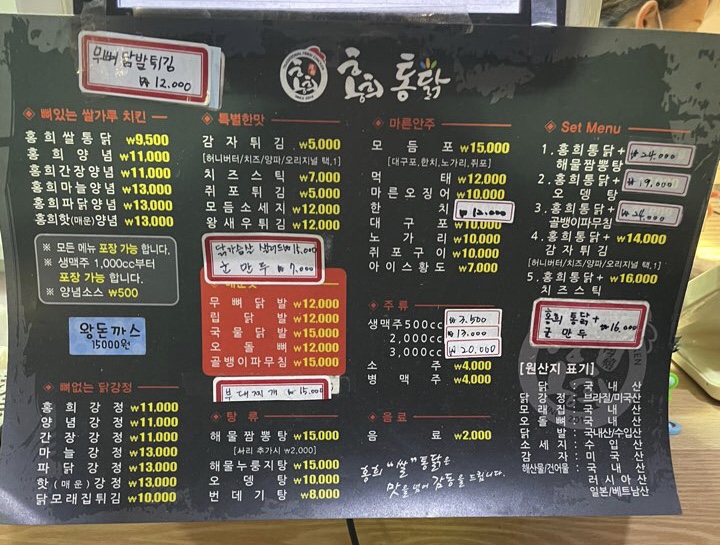 무뼈닭발튀김
₩12.000
홍희
홍희 통닭
뼈있는 쌀가루 치킨
홍희쌀통닭 ₩9,500
홍희양념 ₩11,000
홍희간장양념 ₩11,000
홍희마늘양념 ₩13,000
홍희파닭양념 ₩13,000
홍희핫(매운)양념 ₩13,000
※ 모든 메뉴 포장 가능 합니다.
※ 생맥주 1,000cc부터
포장 가능 합니다.
※ 양념소스 ₩500
왕돈까스
15000원
뼈없는 닭강정
홍희강정 ₩11,000
양념강정 ₩11,000
간장강정 ₩11,000
마늘강정 ₩13,000
파닭강정 ₩13,000
핫(매운)강정 ₩13,000
닭모래집튀김 ₩10,000
특별한맛
감자튀김 ₩5,000
[허니버터/치즈/양파/오리지널 택,1]
치즈스틱 ₩7,000
쥐포튀김 ₩5,000
모듬소세지 ₩12,000
왕새우튀김 ₩12,000
닭가슴살 샐러드 ₩15,000
군만두 ₩7,000
무뼈닭발 ₩12,000
립닭발 ₩12,000
국물닭발 ₩15,000
오돌뼈 ₩12,000
골뱅이파무침 ₩15,000
부대찌개 ₩15,000
탕류
해물짬뽕탕 ₩15,000
[사리 추가시 ₩2,000]
해물누룽지탕 ₩15,000
오뎅탕 ₩10,000
번데기탕 ₩8,000
마른안주
모듬포 ₩15,000
[대구포,한치,노가리,쥐포]
먹태 ₩12,000
마른오징어 ₩10,000
한치 ₩12,000
대구포 ₩10,000
노가리 ₩10,000
쥐포구이 ₩10,000
아이스황도 ₩7,000
주류
생맥주500cc ₩3,500
2,000cc ₩13.000
3,000cc ₩20,000
소주 ₩4,000
병맥주 ₩4,000
음료
음료 ₩2,000
홍희 "쌀" 통닭은
맛을 넘어 감동을 드립니다.
Set Menu
1. 홍희통닭+ ₩24,000
해물짬뽕탕
2. 홍희통닭+ ₩19,000
오뎅탕
3. 홍희통닭+ ₩24,000
골뱅이파무침
4. 홍희통닭+ ₩14,000
감자튀김
[허니버터/치즈/양파/오리지널 택,1]
5. 홍희통닭+ ₩16,000
치즈스틱
홍희통닭+
군만두 ₩16,000
[원산지 표기]
닭 : 국내산
닭강정 : 브라질/미국산
모래집 : 국내산
오돌뼈 : 국내산
닭발 : 국내산/수입산
소세지 : 수입산
감자 : 미국산
해산물/건어물 : 국내산
러시아산
일본/베트남산